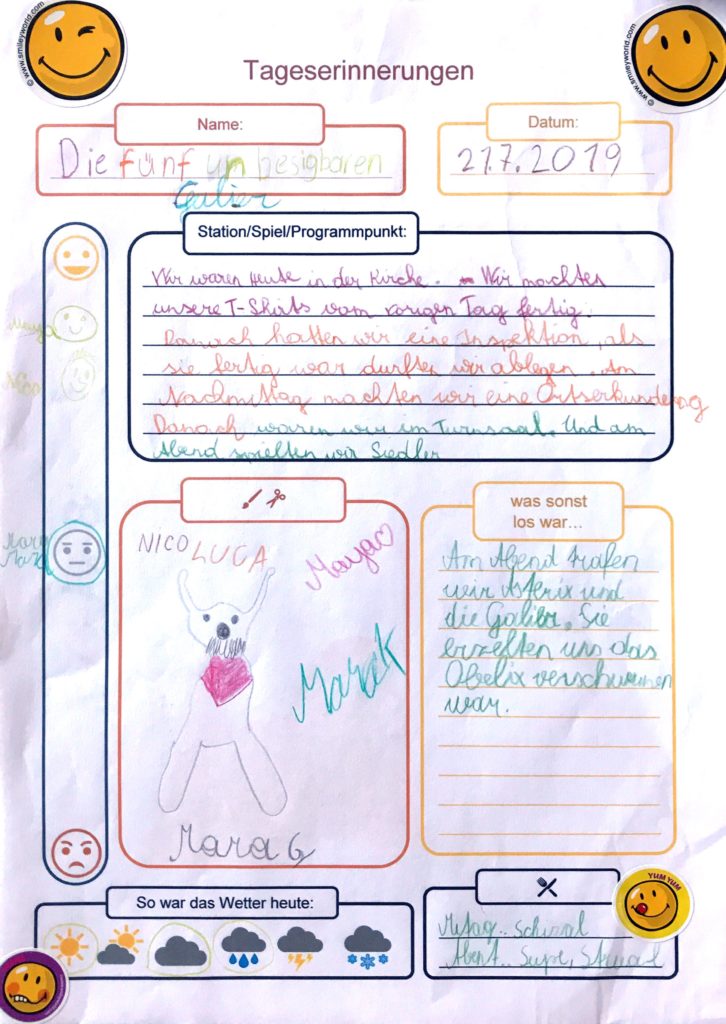 © www.smileyworld.com
© www.smileyworld.com
Tageserinnerungen
Name:
Die fünf un besigbaren
Galier
Datum:
21.7.2019
Station/Spiel/Programmpunkt:
Wir waren Heute in der Kirche. Wir machten
unsere T-Shirts vom vorigen Tag fertig.
Danach hatten wir eine Inspektion, als
sie fertig war durften wir ablegen. Am
Nachmittag machten wir eine Ortserkundung
Danach waren wir im Turnsaal. Und am
Abend spielten wir Siedler
Maya
Nico
Mara
NICO LUCA
Maya
Mara K
Mara G
was sonst
los war...
Am Abend trafen
wir Asterix und
die Galier. Sie
erzelten uns das
Obelix verschwunen
war.
So war das Wetter heute:
YUM YUM
Mitag.. Schinzal
Abent.. Supe, Strudl